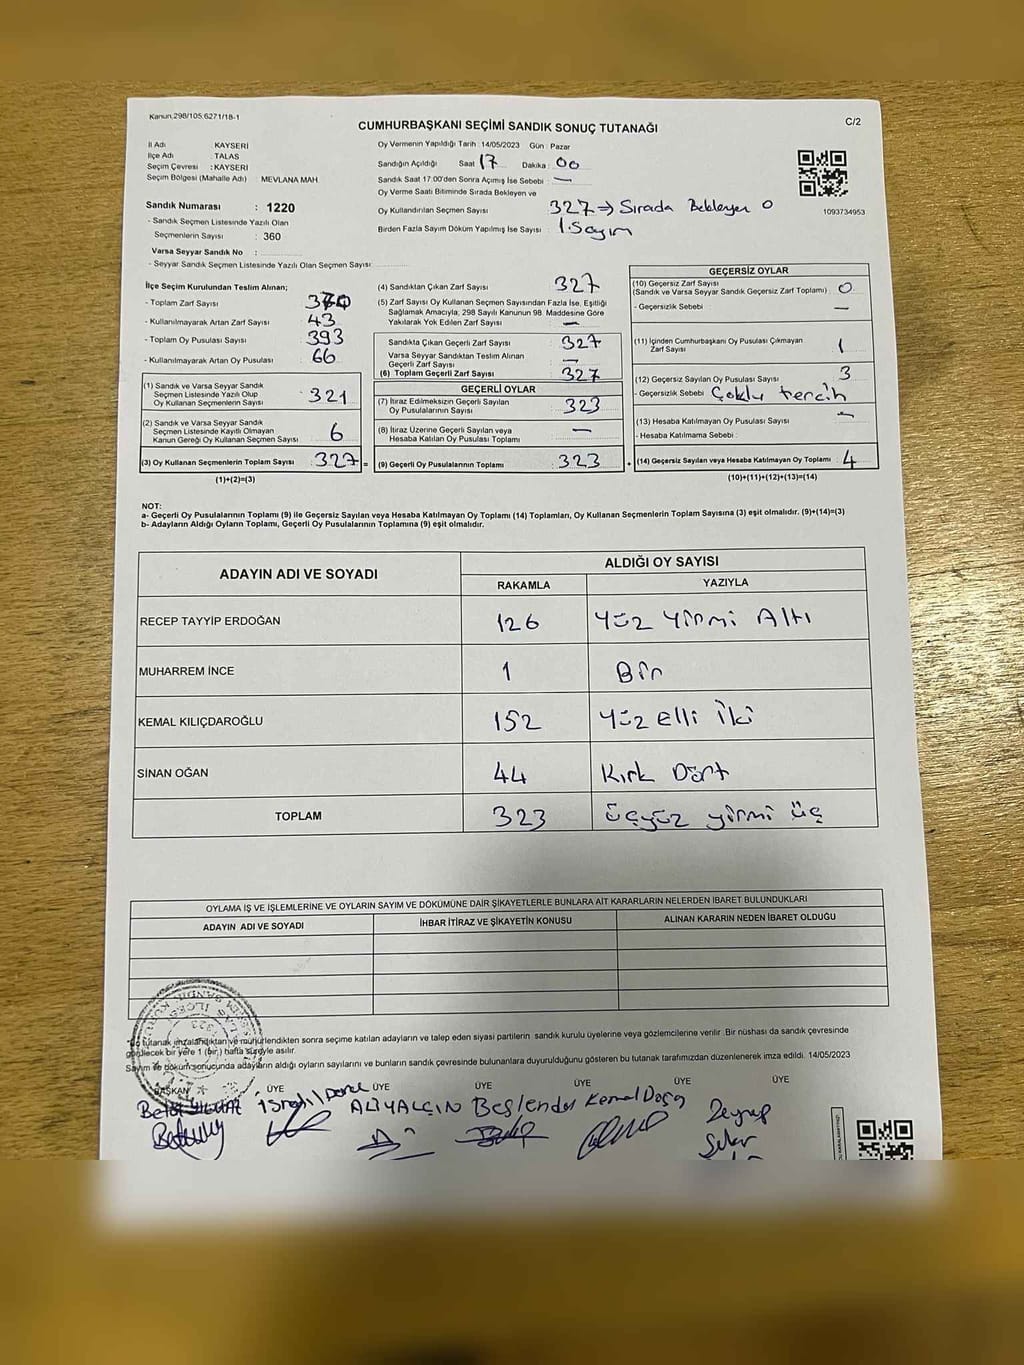 Kanun.298/105.6271/18-1
CUMHURBAŞKANI SEÇİMİ SANDIK SONUÇ TUTANAĞI
C/2
İl Adı : KAYSERİ
İlçe Adı : TALAS
Seçim Çevresi : KAYSERİ
Seçim Bölgesi (Mahalle Adı) : MEVLANA MAH.
Sandık Numarası : 1220
- Sandık Seçmen Listesinde Yazılı Olan
Seçmenlerin Sayısı : 360
Varsa Seyyar Sandık No :
- Seyyar Sandık Seçmen Listesinde Yazılı Olan Seçmen Sayısı:
Oy Vermenin Yapıldığı Tarih : 14/05/2023 Gün : Pazar
Sandığın Açıldığı Saat 17 Dakika : 00
Sandık Saat 17:00'den Sonra Açımış İse Sebebi : —
Oy Verme Saati Bitiminde Sırada Bekleyen ve
Oy Kullandırılan Seçmen Sayısı 327 => Sırada Bekleyen 0
Birden Fazla Sayım Döküm Yapılmış İse Sayısı : 1. Sayım
1093734953
İlçe Seçim Kurulundan Teslim Alınan;
- Toplam Zarf Sayısı
- Kullanılmayarak Artan Zarf Sayısı : 43
- Toplam Oy Pusulası Sayısı : 393
- Kullanılmayarak Artan Oy Pusulası : 66
(1) Sandık ve Varsa Seyyar Sandık
Seçmen Listesinde Yazılı Olup
Oy Kullanan Seçmenlerin Sayısı : 321
(2) Sandık ve Varsa Seyyar Sandık
Seçmen Listesinde Kayıtlı Olmayan
Kanun Gereği Oy Kullanan Seçmen Sayısı : 6
(3) Oy Kullanan Seçmenlerin Toplam Sayısı : 327 =
(1)+(2)=(3)
(4) Sandıktan Çıkan Zarf Sayısı : 327
(5) Zarf Sayısı Oy Kullanan Seçmen Sayısından Fazla İse, Eşitliği
Sağlamak Amacıyla; 298 Sayılı Kanunun 98. Maddesine Göre
Yakılarak Yok Edilen Zarf Sayısı : —
Sandıkta Çıkan Geçerli Zarf Sayısı : 327
Varsa Seyyar Sandıktan Teslim Alınan
Geçerli Zarf Sayısı : —
(6) Toplam Geçerli Zarf Sayısı : 327
GEÇERLİ OYLAR
(7) İtiraz Edilmeksizin Geçerli Sayılan
Oy Pusulalarının Sayısı : 323
(8) İtiraz Üzerine Geçerli Sayılan veya
Hesaba Katılan Oy Pusulası Toplamı : —
(9) Geçerli Oy Pusulalarının Toplamı : 323 +
GEÇERSİZ OYLAR
(10) Geçersiz Zarf Sayısı
(Sandık ve Varsa Seyyar Sandık Geçersiz Zarf Toplamı) : 0
- Geçersizlik Sebebi : —
(11) İçinden Cumhurbaşkanı Oy Pusulası Çıkmayan
Zarf Sayısı : 1
(12) Geçersiz Sayılan Oy Pusulası Sayısı : 3
- Geçersizlik Sebebi : Çoklu tercih
(13) Hesaba Katılmayan Oy Pusulası Sayısı : —
- Hesaba Katılmama Sebebi :
(14) Geçersiz Sayılan veya Hesaba Katılmayan Oy Toplamı : 4
(10)+(11)+(12)+(13)=(14)
NOT:
a- Geçerli Oy Pusulalarının Toplamı (9) ile Geçersiz Sayılan veya Hesaba Katılmayan Oy Toplamı (14) Toplamları, Oy Kullanan Seçmenlerin Toplam Sayısına (3) eşit olmalıdır. (9)+(14)=(3)
b- Adayların Aldığı Oyların Toplamı, Geçerli Oy Pusulalarının Toplamına (9) eşit olmalıdır.
ADAYIN ADI VE SOYADI
ALDIĞI OY SAYISI
RAKAMLA YAZIYLA
RECEP TAYYİP ERDOĞAN 126 Yüz Yirmi Altı
MUHARREM İNCE 1 Bir
KEMAL KILIÇDAROĞLU 152 Yüz elli İki
SİNAN OĞAN 44 Kırk Dört
TOPLAM 323 üçyüz yirmi üç
OYLAMA İŞ VE İŞLEMLERİNE VE OYLARIN SAYIM VE DÖKÜMÜNE DAİR ŞİKAYETLERLE BUNLARA AİT KARARLARIN NELERDEN İBARET BULUNDUKLARI
ADAYIN ADI VE SOYADI İHBAR İTİRAZ VE ŞİKAYETİN KONUSU ALINAN KARARIN NEDEN İBARET OLDUĞU
tutanak imzalandıktan ve mühürlendikten sonra seçime katılan adayların ve talep eden siyasi partilerin sandık kurulu üyelerine veya gözlemcilerine verilir. Bir nüshası da sandık çevresinde
görülecek bir yere 1 (bir) hafta süreyle asılır.
Sayım ve döküm sonucunda adayların aldığı oyların sayılarını ve bunların sandık çevresinde bulunanlara duyurulduğunu gösteren bu tutanak tarafımızdan düzenlenerek imza edildi. 14/05/2023
BAŞKAN ÜYE ÜYE ÜYE ÜYE ÜYE ÜYE
ALİ YALÇIN Kemal Zeynep